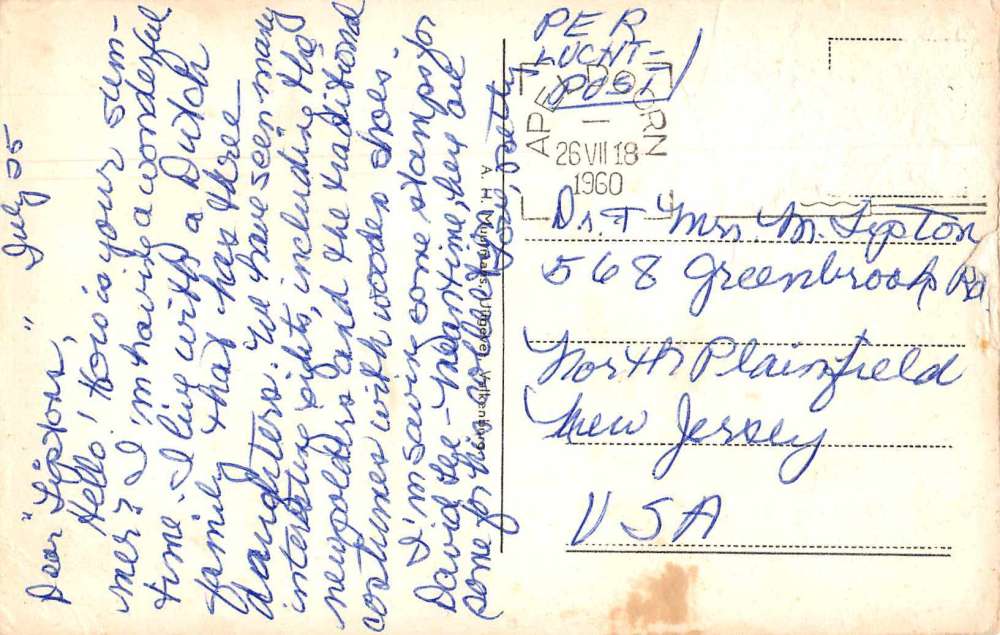 Dear "Liptons," July 25
Hello! How is your sum-
mer? I'm having a wonderful
time. I live with a Dutch
family that has three
daughters. We have seen many
interesting sights, including the
new polders and the traditional
costumes with wooden shoes.
I'm saving some stamps for
David Lye - Meantime, here are
some for his collection.
Love, Betty
PER
LUCHT-
POST
APELDOORN
26 VII 18
1960
A. H. Murmans, Uitgever, Valkenburg
Dr. & Mrs. M. Lipton
568 Greenbrook Rd
North Plainfield
New Jersey
USA